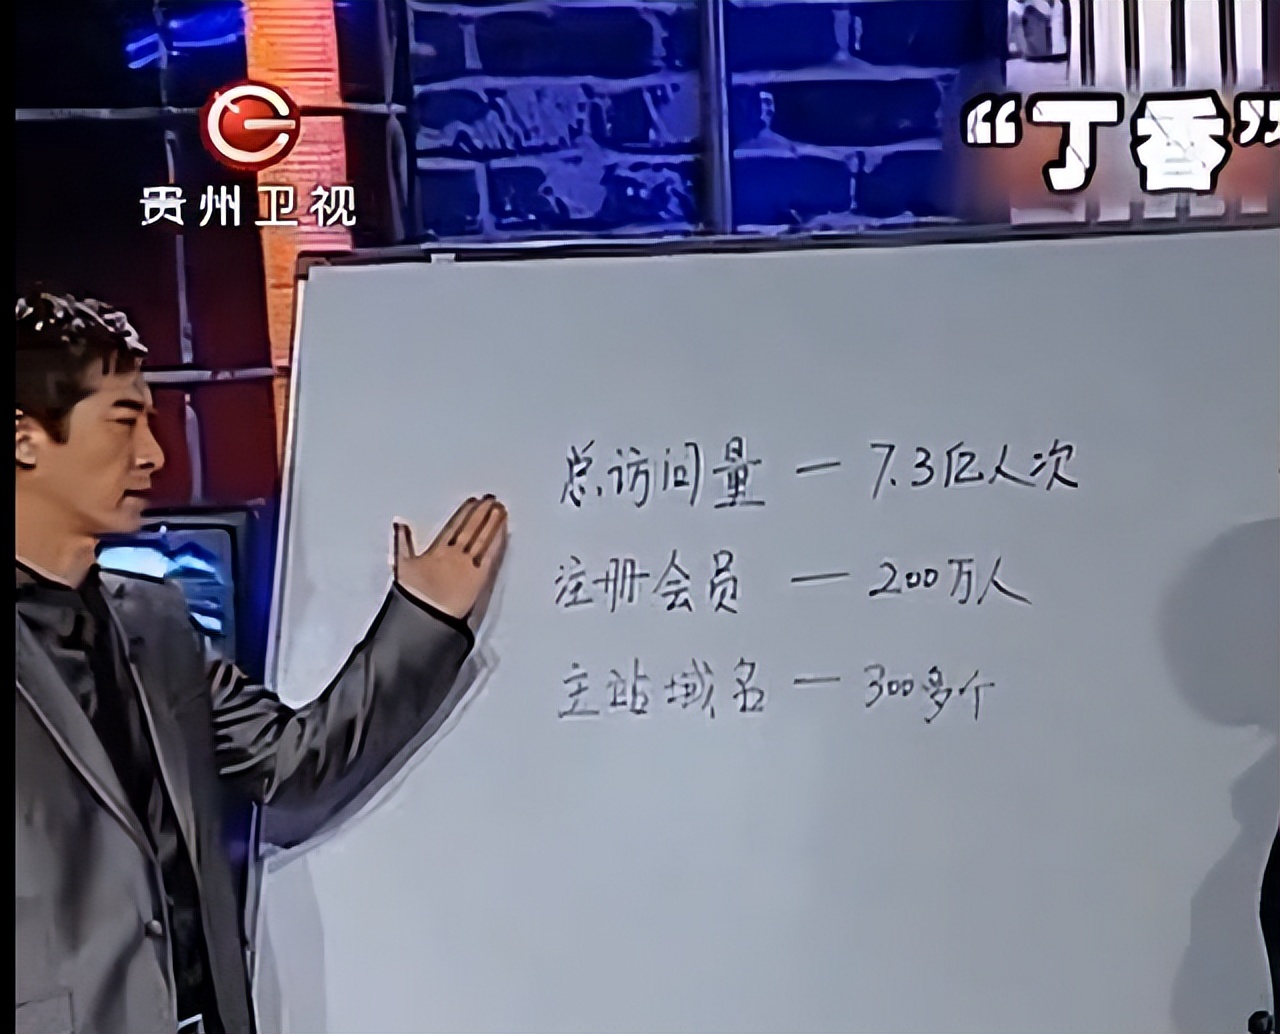 贵州卫视
“丁香”
总访问量 — 7.3亿人次
注册会员 — 200万人
主站域名 — 300多个